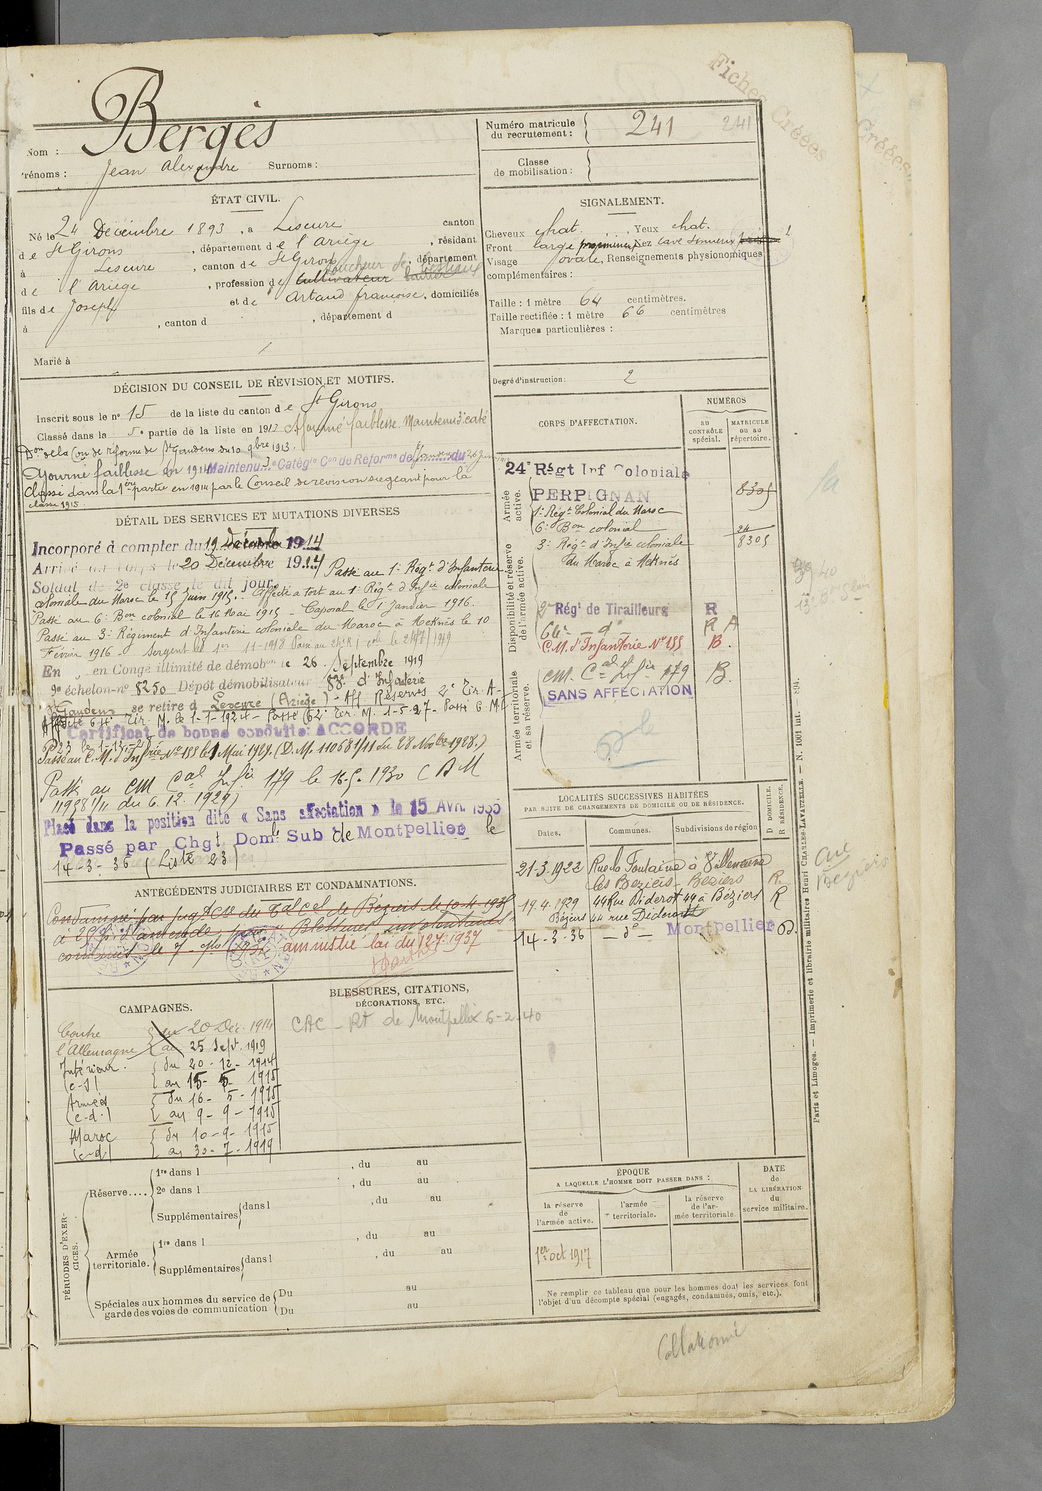 Fiches Créées
Créées
Bergès
Nom :
Prénoms : Jean Alexandre Surnoms :
Numéro matricule du recrutement : 241 241
Classe de mobilisation :
ÉTAT CIVIL.
Né le 24 Décembre 1893, à Liscure canton
de St Girons, département de l'Ariège, résidant
à Liscure, canton de St Girons, département
de l'Ariège, profession de cultivateur
fils de Joseph et de Artaud françoise, domiciliés
à , canton d , département d
Marié à
SIGNALEMENT.
Cheveux chat. Yeux chat.
Front large Nez cave
Visage ovale, Renseignements physionomiques
complémentaires :
Taille : 1 mètre 64 centimètres.
Taille rectifiée : 1 mètre 66 centimètres
Marques particulières :
Degré d'instruction : 2
DÉCISION DU CONSEIL DE REVISION ET MOTIFS.
Inscrit sous le nº 15 de la liste du canton de St Girons
Classé dans la 5e partie de la liste en 1913 Ajourné faiblesse. Maintenu
Don de la Con de réforme de St Gaudens du 10 9bre 1913.
Ajourné faiblesse en 1914 Maintenu Catégie Con de Réforme de
Classé dans la 1ère partie en 1914 par le Conseil de revision siégeant pour la
classe 1915
DÉTAIL DES SERVICES ET MUTATIONS DIVERSES
Incorporé à compter du 19 Décembre 1914
Arrivé au corps le 20 Décembre 1914 Passé au 1er Régt d'Infanterie
Soldat de 2e classe le dit jour. Affecté à tort au 1er Régt d'Infie coloniale
coloniale du Maroc le 15 juin 1915.
Passé au 6e Bon colonial le 16 Mai 1915 - Caporal le 1er Janvier 1916.
Passé au 3e Régiment d'Infanterie coloniale du Maroc à Meknès le 10
Février 1916 - Sergent le 1er 11-1918
En Congé illimité de démobon le 26 Septembre 1919
9e échelon nº 8250 Dépôt démobilisateur 88e d'Infanterie
St Gaudens se retire à Lescure (Ariège) Aff. Réserves 2e Tir. A-
Affecté 64e Tir. M. le 1-1-1924 - Passé 62e Tir. M. 1-5-27 - Passé C M
Certificat de bonne conduite: ACCORDÉ
Passé au C.M. d'Infrie Nº 155 le 1 Mai 1929. (D.M. 11058 1/11 du 28 Nobre 1928.)
Passé au CM Cal Infie 179 le 16-5-1930 (DM
11938 1/11 du 6.12.1929)
Placé dans la position dite « Sans affectation » le 15 AVR. 1935
Passé par Chgt Domle Sub de Montpellier le
14-3-36 (Liste 23)
CORPS D'AFFECTATION.
NUMÉROS
AU CONTRÔLE spécial.
MATRICULE OU AU répertoire.
Armée active.
24e Régt Inf Coloniale
PERPIGNAN 8305
1er Régt Colonial du Maroc
6e Bon colonial
3e Régt d'Infie coloniale 8305
du Maroc à Meknès
Disponibilité et réserve de l'armée active.
2e Régt de Tirailleurs R
64e - d° - R A
C.M. d'Infanterie Nº 155 B.
Armée territoriale et sa réserve.
CM. Cal Infie 179 B.
SANS AFFECTATION
LOCALITÉS SUCCESSIVES HABITÉES
PAR SUITE DE CHANGEMENTS DE DOMICILE OU DE RÉSIDENCE.
Dates. Communes. Subdivisions de région D DOMICILE. R RÉSIDENCE.
21-3-1922 Rue la Fontaine à Villeneuve
les Béziers - Béziers R.
19.4.1929 44 Rue Diderot 44 à Béziers R
Béziers 44 rue Diderot
14-3-36 - d° - Montpellier D.
ANTÉCÉDENTS JUDICIAIRES ET CONDAMNATIONS.
Condamné par jugt du Tal Cel de Béziers le 10-4-
à d'amende, pour Blessures involontaires
amnistié loi du 12 7 1937
CAMPAGNES.
Contre l'Allemagne du 20 Déc. 1914
au 25 Sept. 1919
Intérieur du 20-12-1914
(c-s) au 15-5-1915
Armées du 16-5-1915
(c-d) au 9-9-1915
Maroc du 10-9-1915
(c-d) au 30-7-1919
BLESSURES, CITATIONS, DÉCORATIONS, ETC.
CAC - Rt de Montpellier 6-2-40
PÉRIODES D'EXERCICES.
Réserve.... 1re dans l , du au
2e dans l , du au
Supplémentaires dans l , du au
Armée territoriale. 1re dans l , du au
Supplémentaires dans l , du au
Spéciales aux hommes du service de garde des voies de communication Du au
Du au
ÉPOQUE
A LAQUELLE L'HOMME DOIT PASSER DANS :
la réserve de l'armée active.
l'armée territoriale.
la réserve de l'armée territoriale.
DATE de LA LIBÉRATION du service militaire.
1er oct 1917
Ne remplir ce tableau que pour les hommes dont les services font
l'objet d'un décompte spécial (engagés, condamnés, omis, etc.).
Collationné
Paris et Limoges. — Imprimerie et librairie militaires Henri CHARLES-LAVAUZELLE. — N. 1001 int. 894.
Béziers